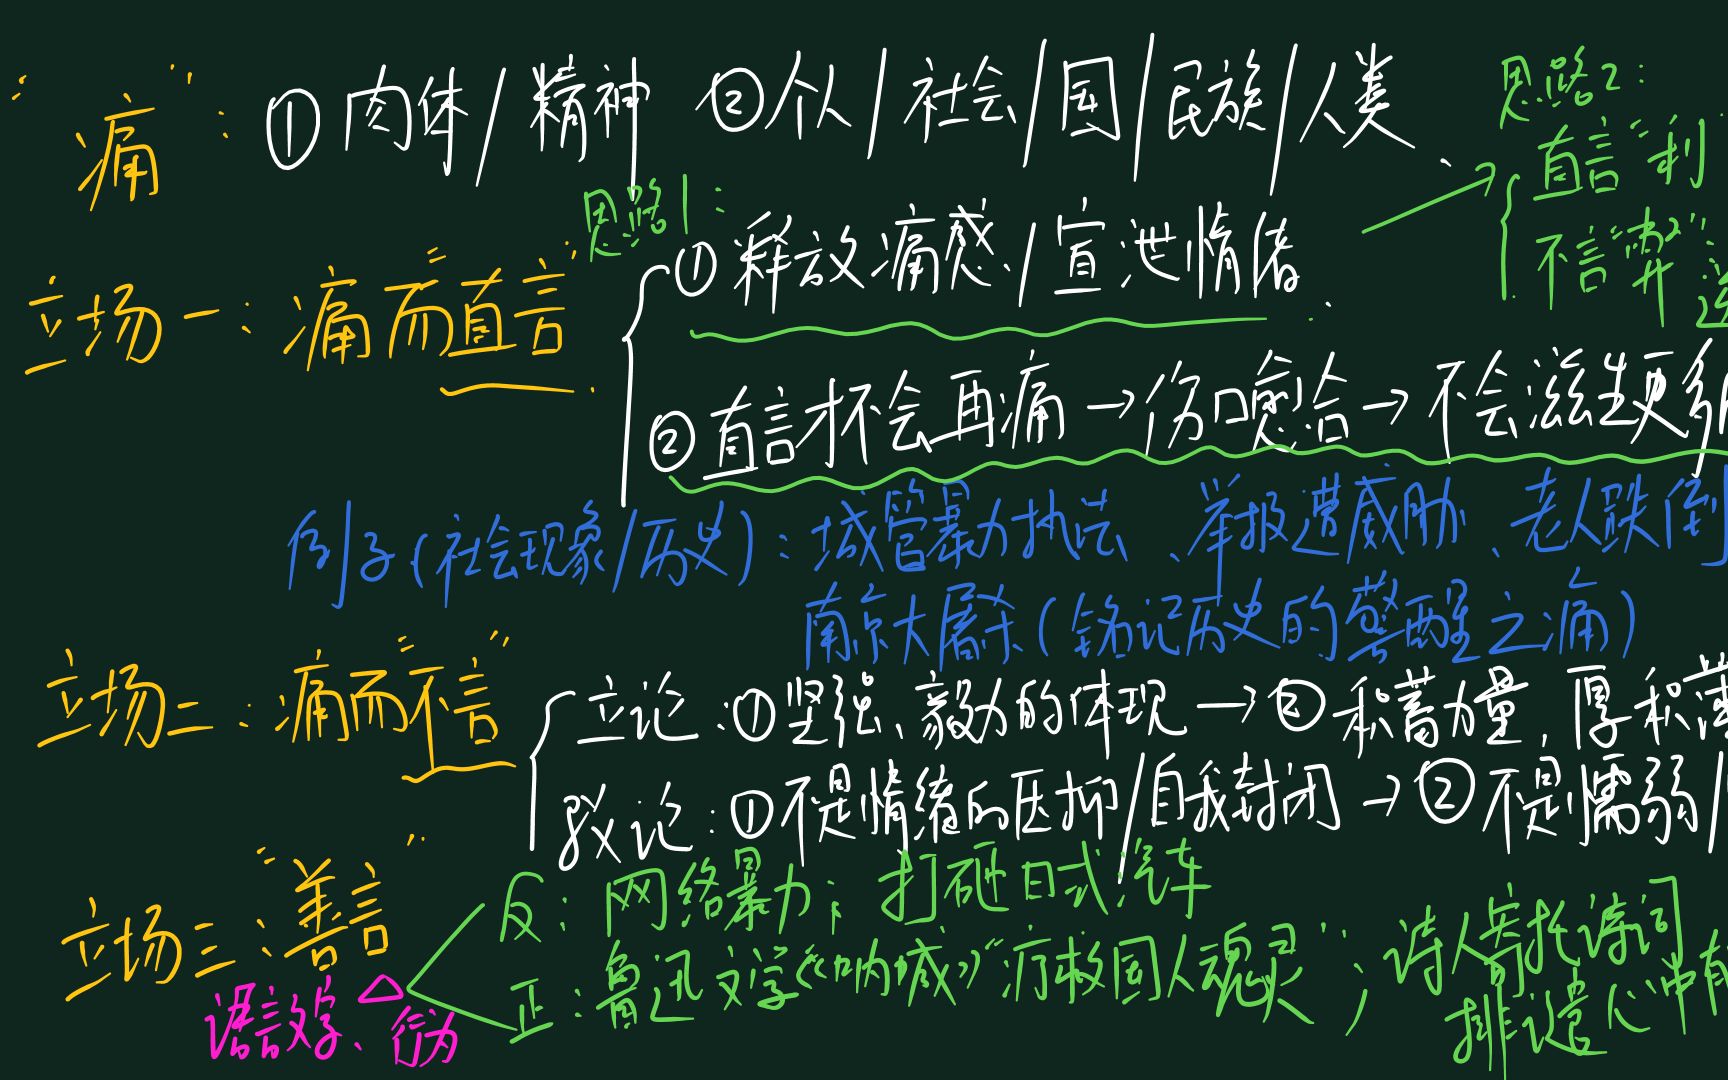 “痛”：①肉体/精神 ②个人/社会/国/民族/人类、
思路2：
直言“利
不言“弊”：
思路1：
立场一：痛而“直言”
①释放痛感/宣泄情绪.
②直言才不会再痛→伤口愈合→不会滋生更多
例子(社会现象/历史)：城管暴力执法、举报遭威胁、老人跌倒
南京大屠杀(铭记历史的警醒之痛)
立场二：痛而“不言”
立论：①坚强、毅力的体现→②积蓄力量，厚积薄
驳论：①不是情绪的压抑/自我封闭→②不是懦弱/
立场三：“善言”
语言文字、行为
反：网络暴力；打砸日式汽车
正：鲁迅文学《呐喊》“疗救国人魂灵”；诗人寄托诗词
排遣心中